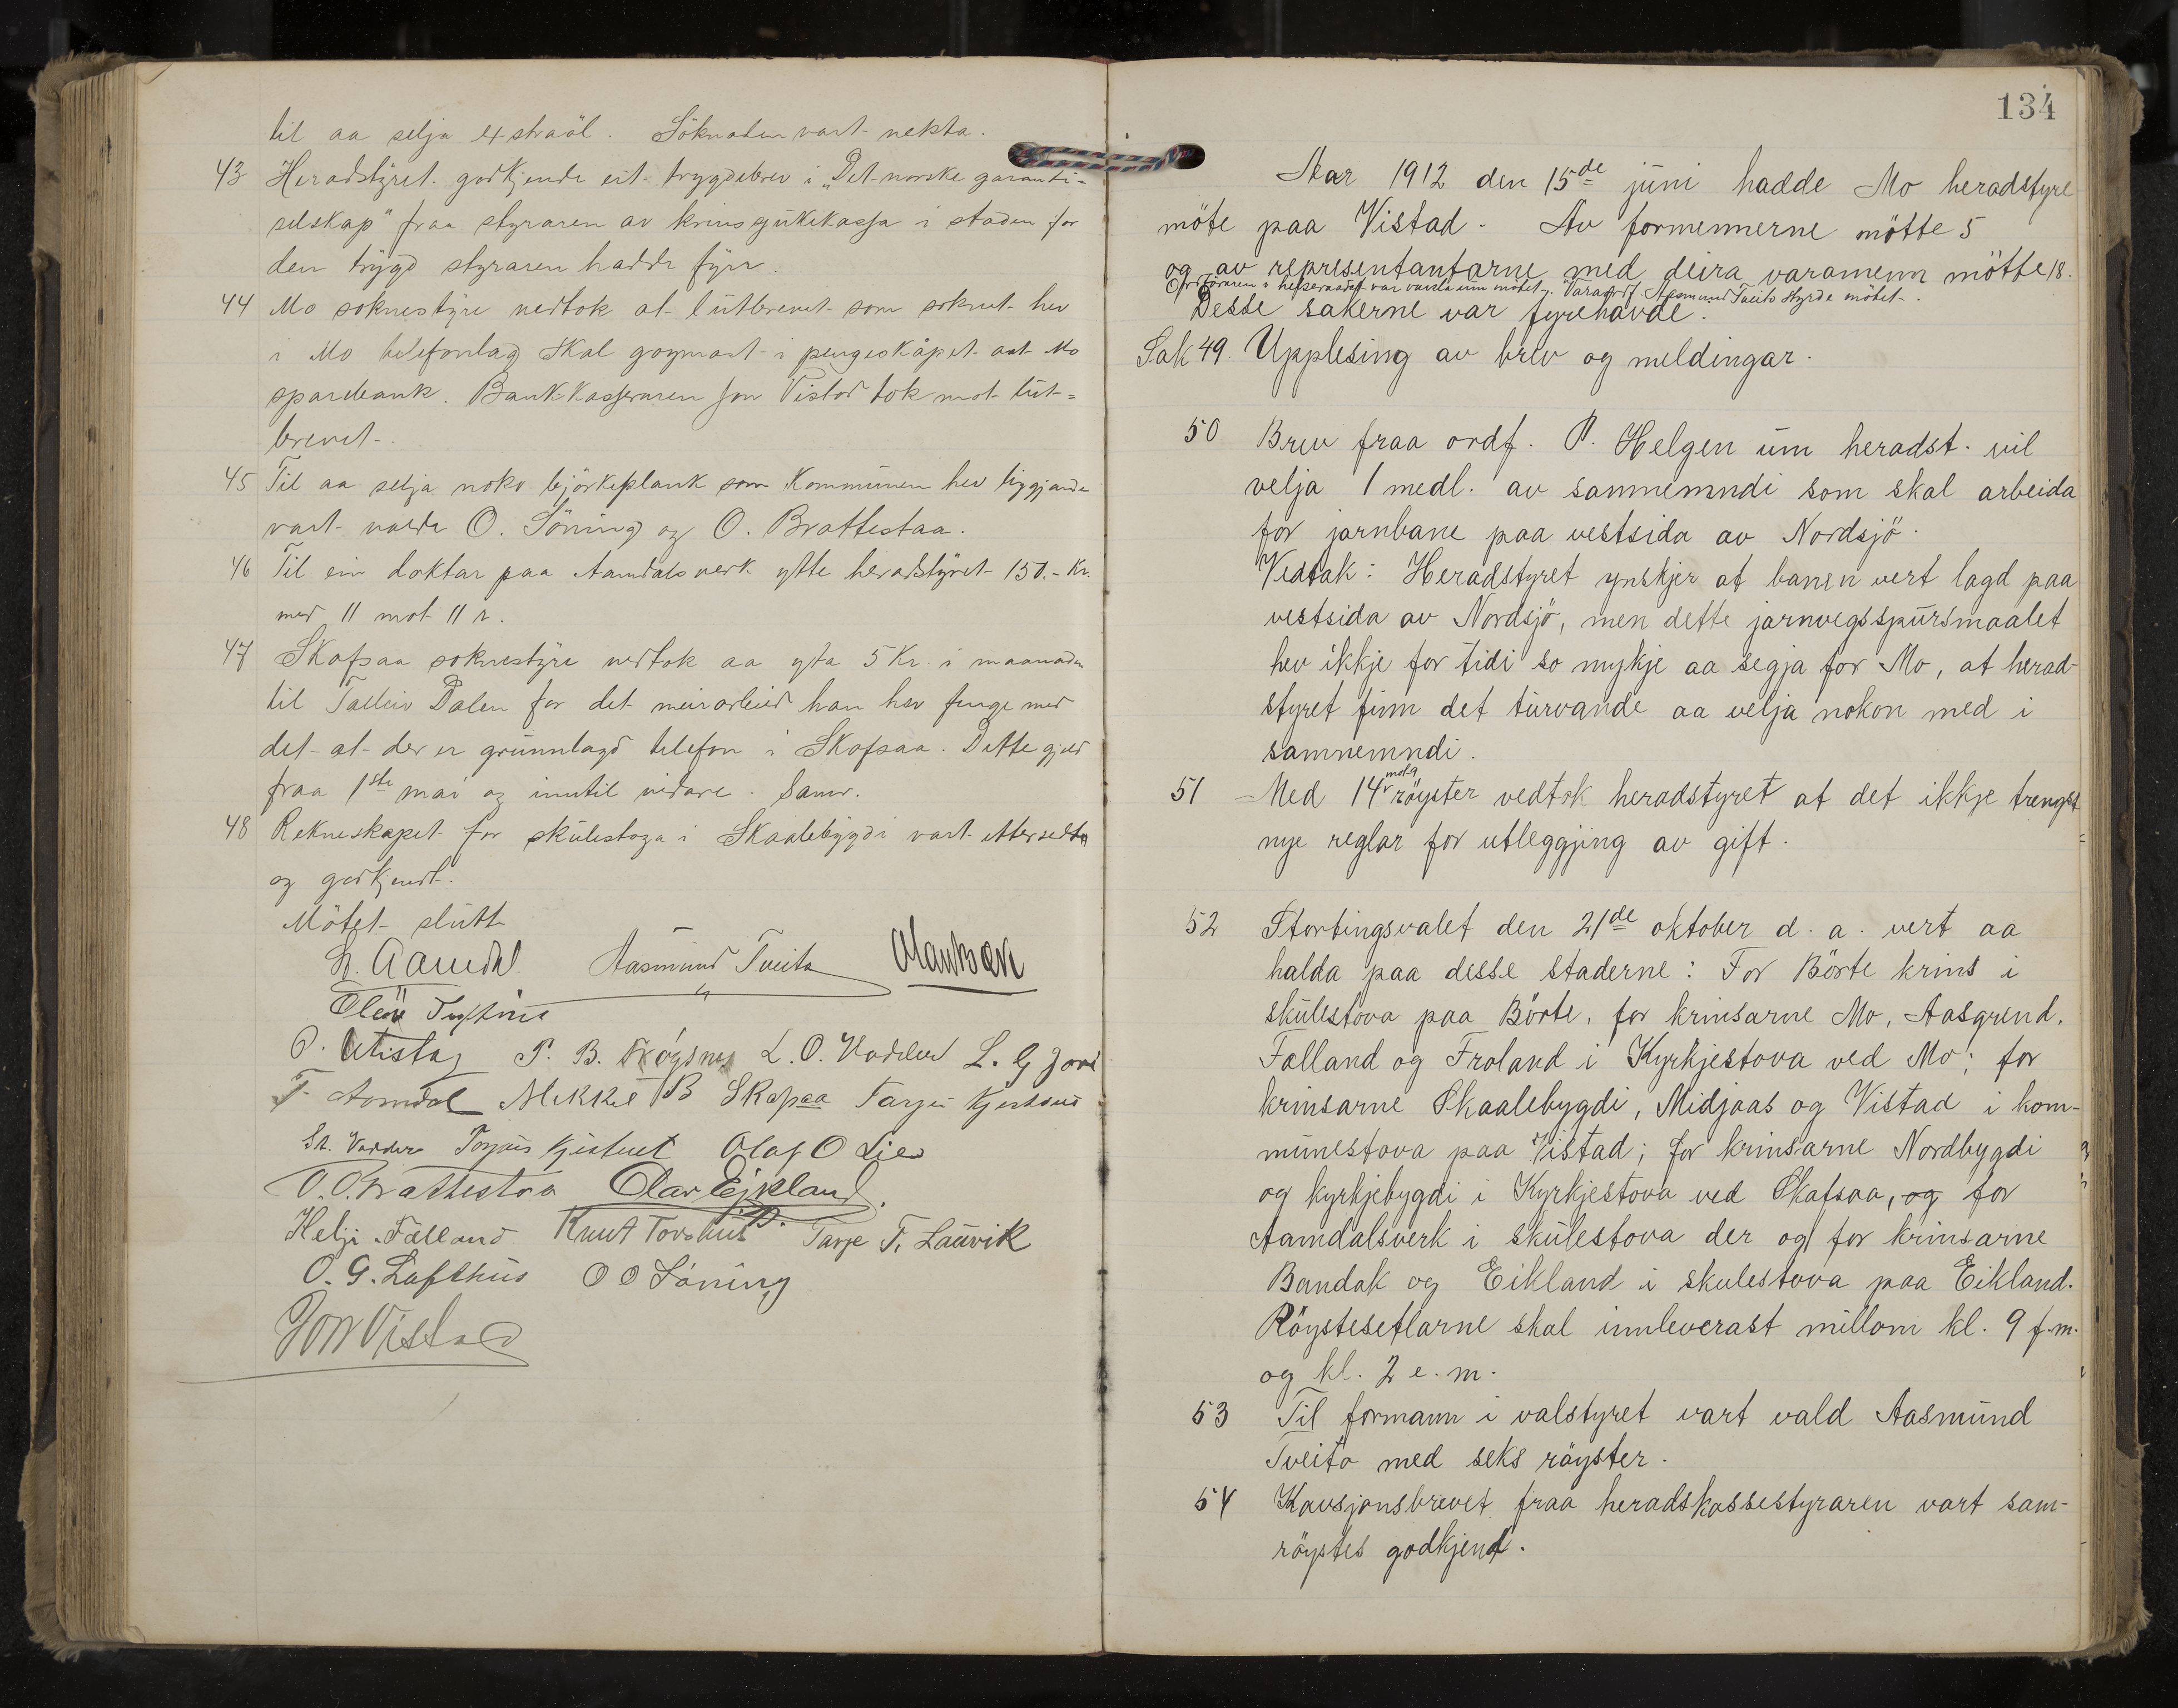 til aa selja extraöl. Söknaden vart nekta.
43 Heradstyret godkjende eit trygdebrev i "Det norske garanti-
selskap" fraa styraren av krinssjukekassa i staden for
den trygd styraren hadde fyrr.
44 Mo soknestyre vedtok at lutbrevet som soknet hev
i Mo telefonlag skal goymast i pengeskåpet aat Mo
sparebank. Bankkasseraren Jon Vistad tok mot lut-
brevet.
45 Til aa selja noko björkeplank som kommunen hev liggjande
vart valde O. Söning og O. Brattestaa.
46 Til ein doktar paa Aamdals verk ytte heradstyret 150.- Kr.
med 11 mot 11 r.
47 Skafsaa soknestyre vedtok aa yta 5 Kr. i maanaden
til Talleiv Dalen for det meirarbeid han hev fenge med
det at der er grunnlagd telefon i Skafsaa. Dette gjeld
fraa 1ste mai og inntil vidare. Samr.
48 Rekneskapet for skulestoga i Skaalebygdi vart ettersedt
og godkjendt.
Mötet slutt
H. Aamdal Aasmund Tveito
O. Utistog P. B. L. O. Vadder L. G.
T. Aamdal Mikkel B Skafsaa Tarjei Kjerstad
Torjus Olaf O Lie
O. O. Brattestaa Olav Eikland
Helje Falland Knut Torshus Tarje T. Lauvik
O. G. Lofthus O O Söning
Jon Vistad
134
Aar 1912 den 15de juni hadde Mo heradstyre
möte paa Vistad. Av formennerne mötte 5
og av representantarne med deira varamenn mötte 18.
Ordföraren i helseraadet var varsla um mötet. Varaordf. Aasmund Tveito styrde mötet.
Desse sakerne var fyrehavde.
Sak 49. Upplesing av brev og meldingar.
50 Brev fraa ordf. P. Helgen um heradst. vil
velja 1 medl. av samnemndi som skal arbeida
for jarnbane paa vestsida av Nordsjö.
Vedtak: Heradstyret ynskjer at banen vert lagd paa
vestsida av Nordsjö, men dette jarnvegsspursmaalet
hev ikkje for tidi so mykje aa segja for Mo, at herad-
styret finn det turvande aa velja nokon med i
samnemndi.
51 - Med 14 mot 9 röyster vedtok heradstyret at det ikkje trengst
nye reglar for utleggjing av gift.
52 Stortingsvalet den 21de oktober d. a. vert aa
halda paa desse staderne: For Börte krins i
skulestova paa Börte, for krinsarne Mo, Aasgrend,
Falland og Froland i Kyrkjestova ved Mo; for
krinsarne Skaalebygdi, Midjaas og Vistad i kom-
munestova paa Vistad; for krinsarne Nordbygdi
og kyrkjebygdi i Kyrkjestova ved Skafsaa, og for
Aamdalsverk i skulestova der og for krinsarne
Bandak og Eikland i skulestova paa Eikland.
Röystesetlarne skal innleverast millom kl. 9 f.m.
og kl. 2 e.m.
53 Til formann i valstyret vart vald Aasmund
Tveito med seks röyster.
54 Kausjonsbrevet fraa heradskassestyraren vart sam-
röystes godkjend.